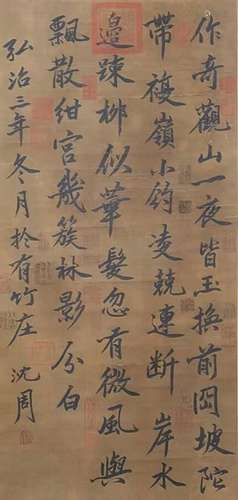 作奇觀山一夜皆玉換前岡坡陀
帶複嶺小約凌兢連斷岸水
邊踈柳似華髮忽有微風與
飄散紺宮幾簇林影分白
弘治三年冬月於有竹庄沈周